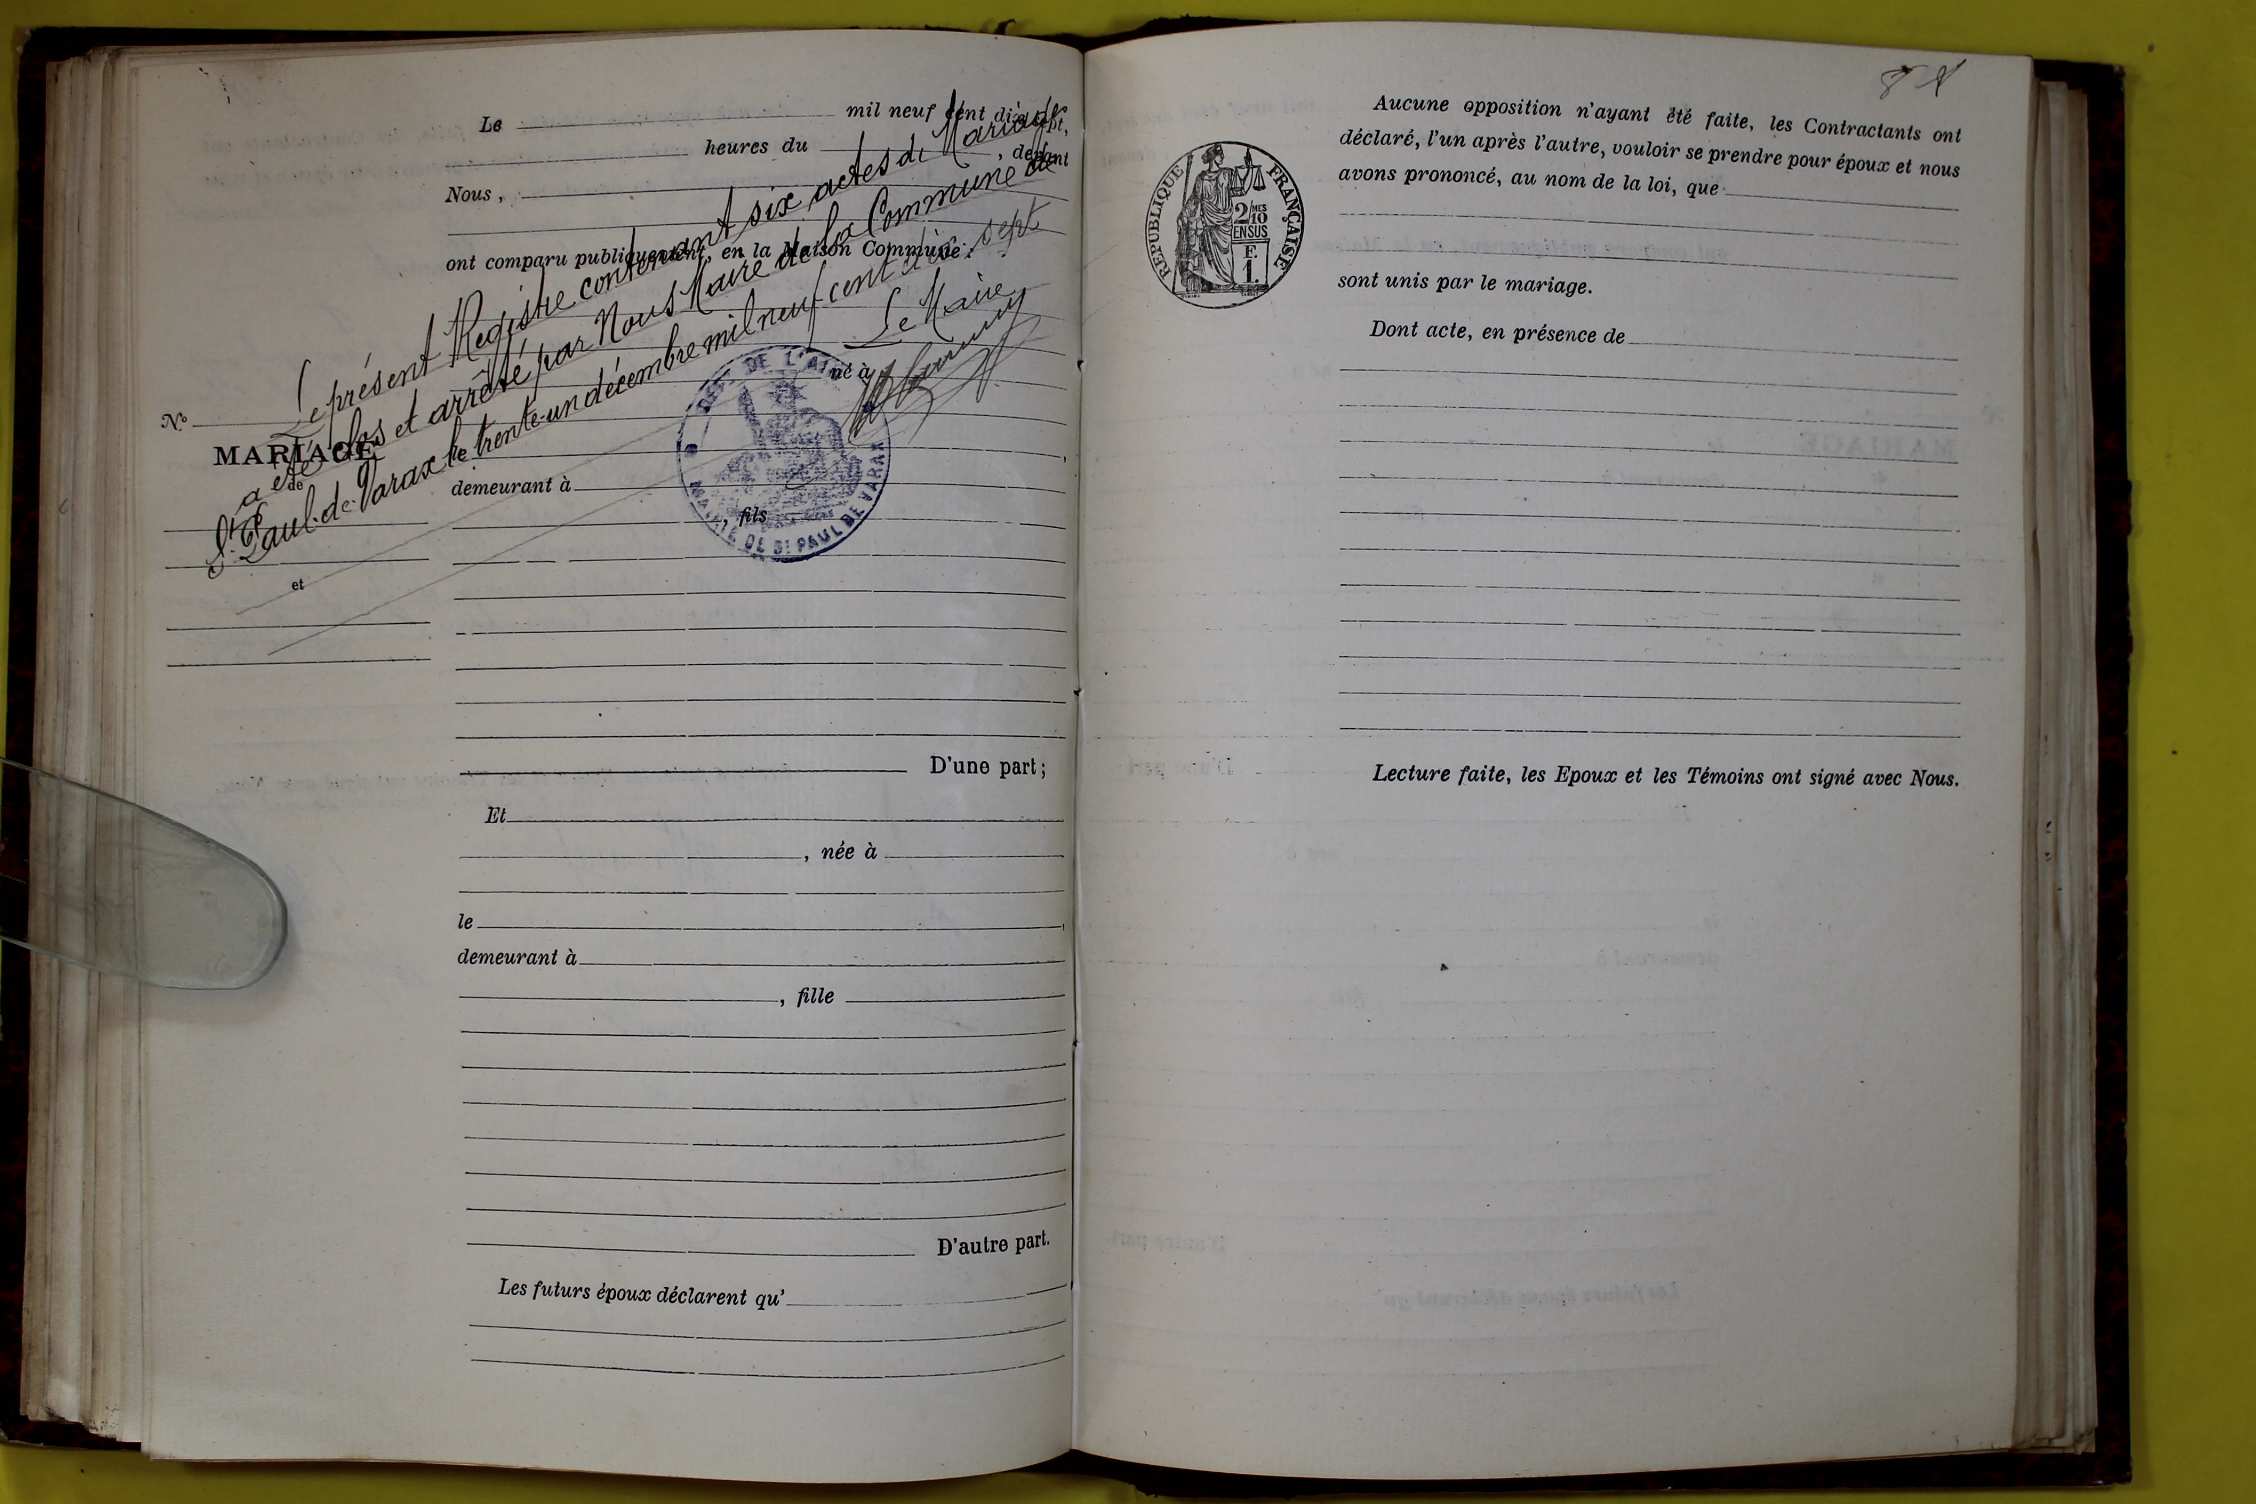 Le mil neuf cent dix-sept,
heures du , devant
Nous,
ont comparu publiquement, en la Maison Commune :
Le présent Registre contenant six actes de Mariage
a été clos et arrêté par Nous Maire de la Commune de
St Paul-de-Varax le trente-un décembre mil neuf cent dix-sept
Le Maire
DEPT DE L'AIN
MAIRIE DE ST PAUL DE VARAX
né à
No
MARIAGE
de
et
demeurant à
, fils
D'une part ;
Et
, née à
le
demeurant à
, fille
D'autre part.
Les futurs époux déclarent qu'
RÉPUBLIQUE FRANÇAISE
2/MES
10
EN SUS
F.
1.
Aucune opposition n'ayant été faite, les Contractants ont
déclaré, l'un après l'autre, vouloir se prendre pour époux et nous
avons prononcé, au nom de la loi, que
sont unis par le mariage.
Dont acte, en présence de
Lecture faite, les Epoux et les Témoins ont signé avec Nous.